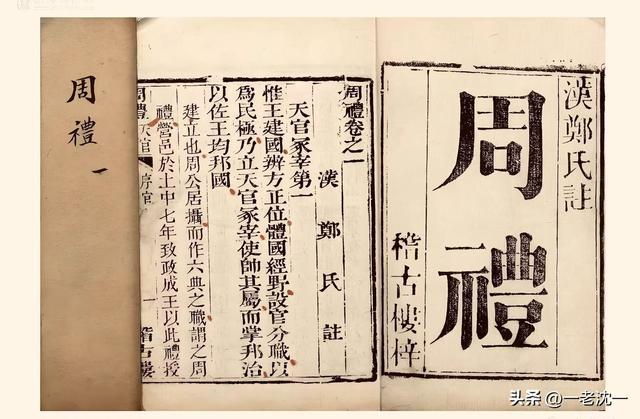 漢鄭氏註
周禮
稽古樓梓
周禮卷之一
漢 鄭 氏 註
天官冢宰第一
惟王建國辨方正位體國經野設官分職以
爲民極乃立天官冢宰使帥其屬而掌邦治
以佐王均邦國
建立也周公居攝而作六典之職謂之周
禮營邑於土中七年致政成王以此禮授
周禮 天官 序官 一 稽古樓
周禮 一
头条 @一老沈一